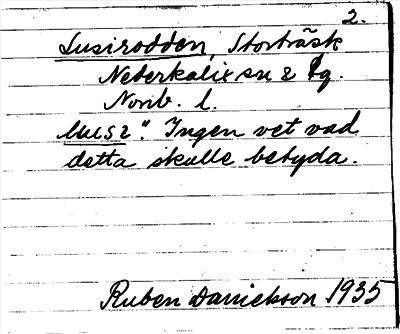 2.
Lusirodden, Storträsk
Nederkalix sn & tg.
Norrb. l.
lus2". Ingen vet vad
detta skulle betyda.
Ruben Danielsson 1935